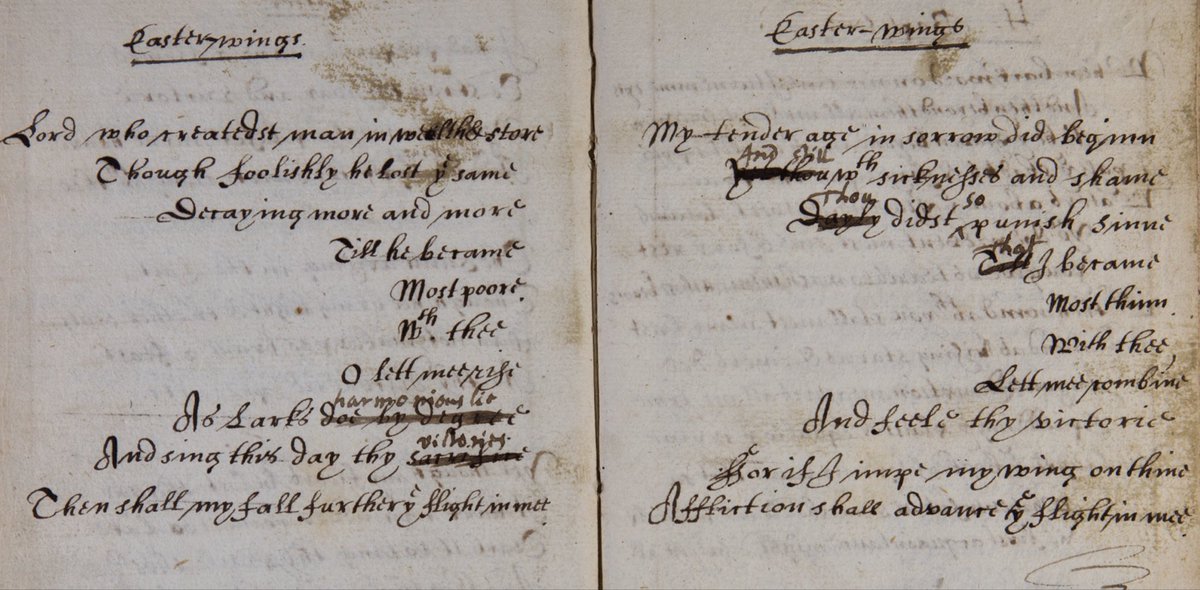 Easter-wings.
Lord who createdst man in wealth & store
Though foolishly he lost yͤ same
Decaying more and more
Till he became
Most poore.
Wᵗʰ thee
O lett mee rise
harmoniouslie
As Larks doe by degree
victories
And sing this day thy sacrifice
Then shall my fall further yͤ flight in mee
Easter-wings
My tender age in sorrow did beginn
And still
Yet thou wᵗʰ sicknesses and shame
Thou so
Dayly didst ‸ punish sinne
That
Till I became
Most thinn.
With thee
Lett mee combine
And feele thy victorie
For if I impe my wing on thine
Affliction shall advance yͤ flight in mee.